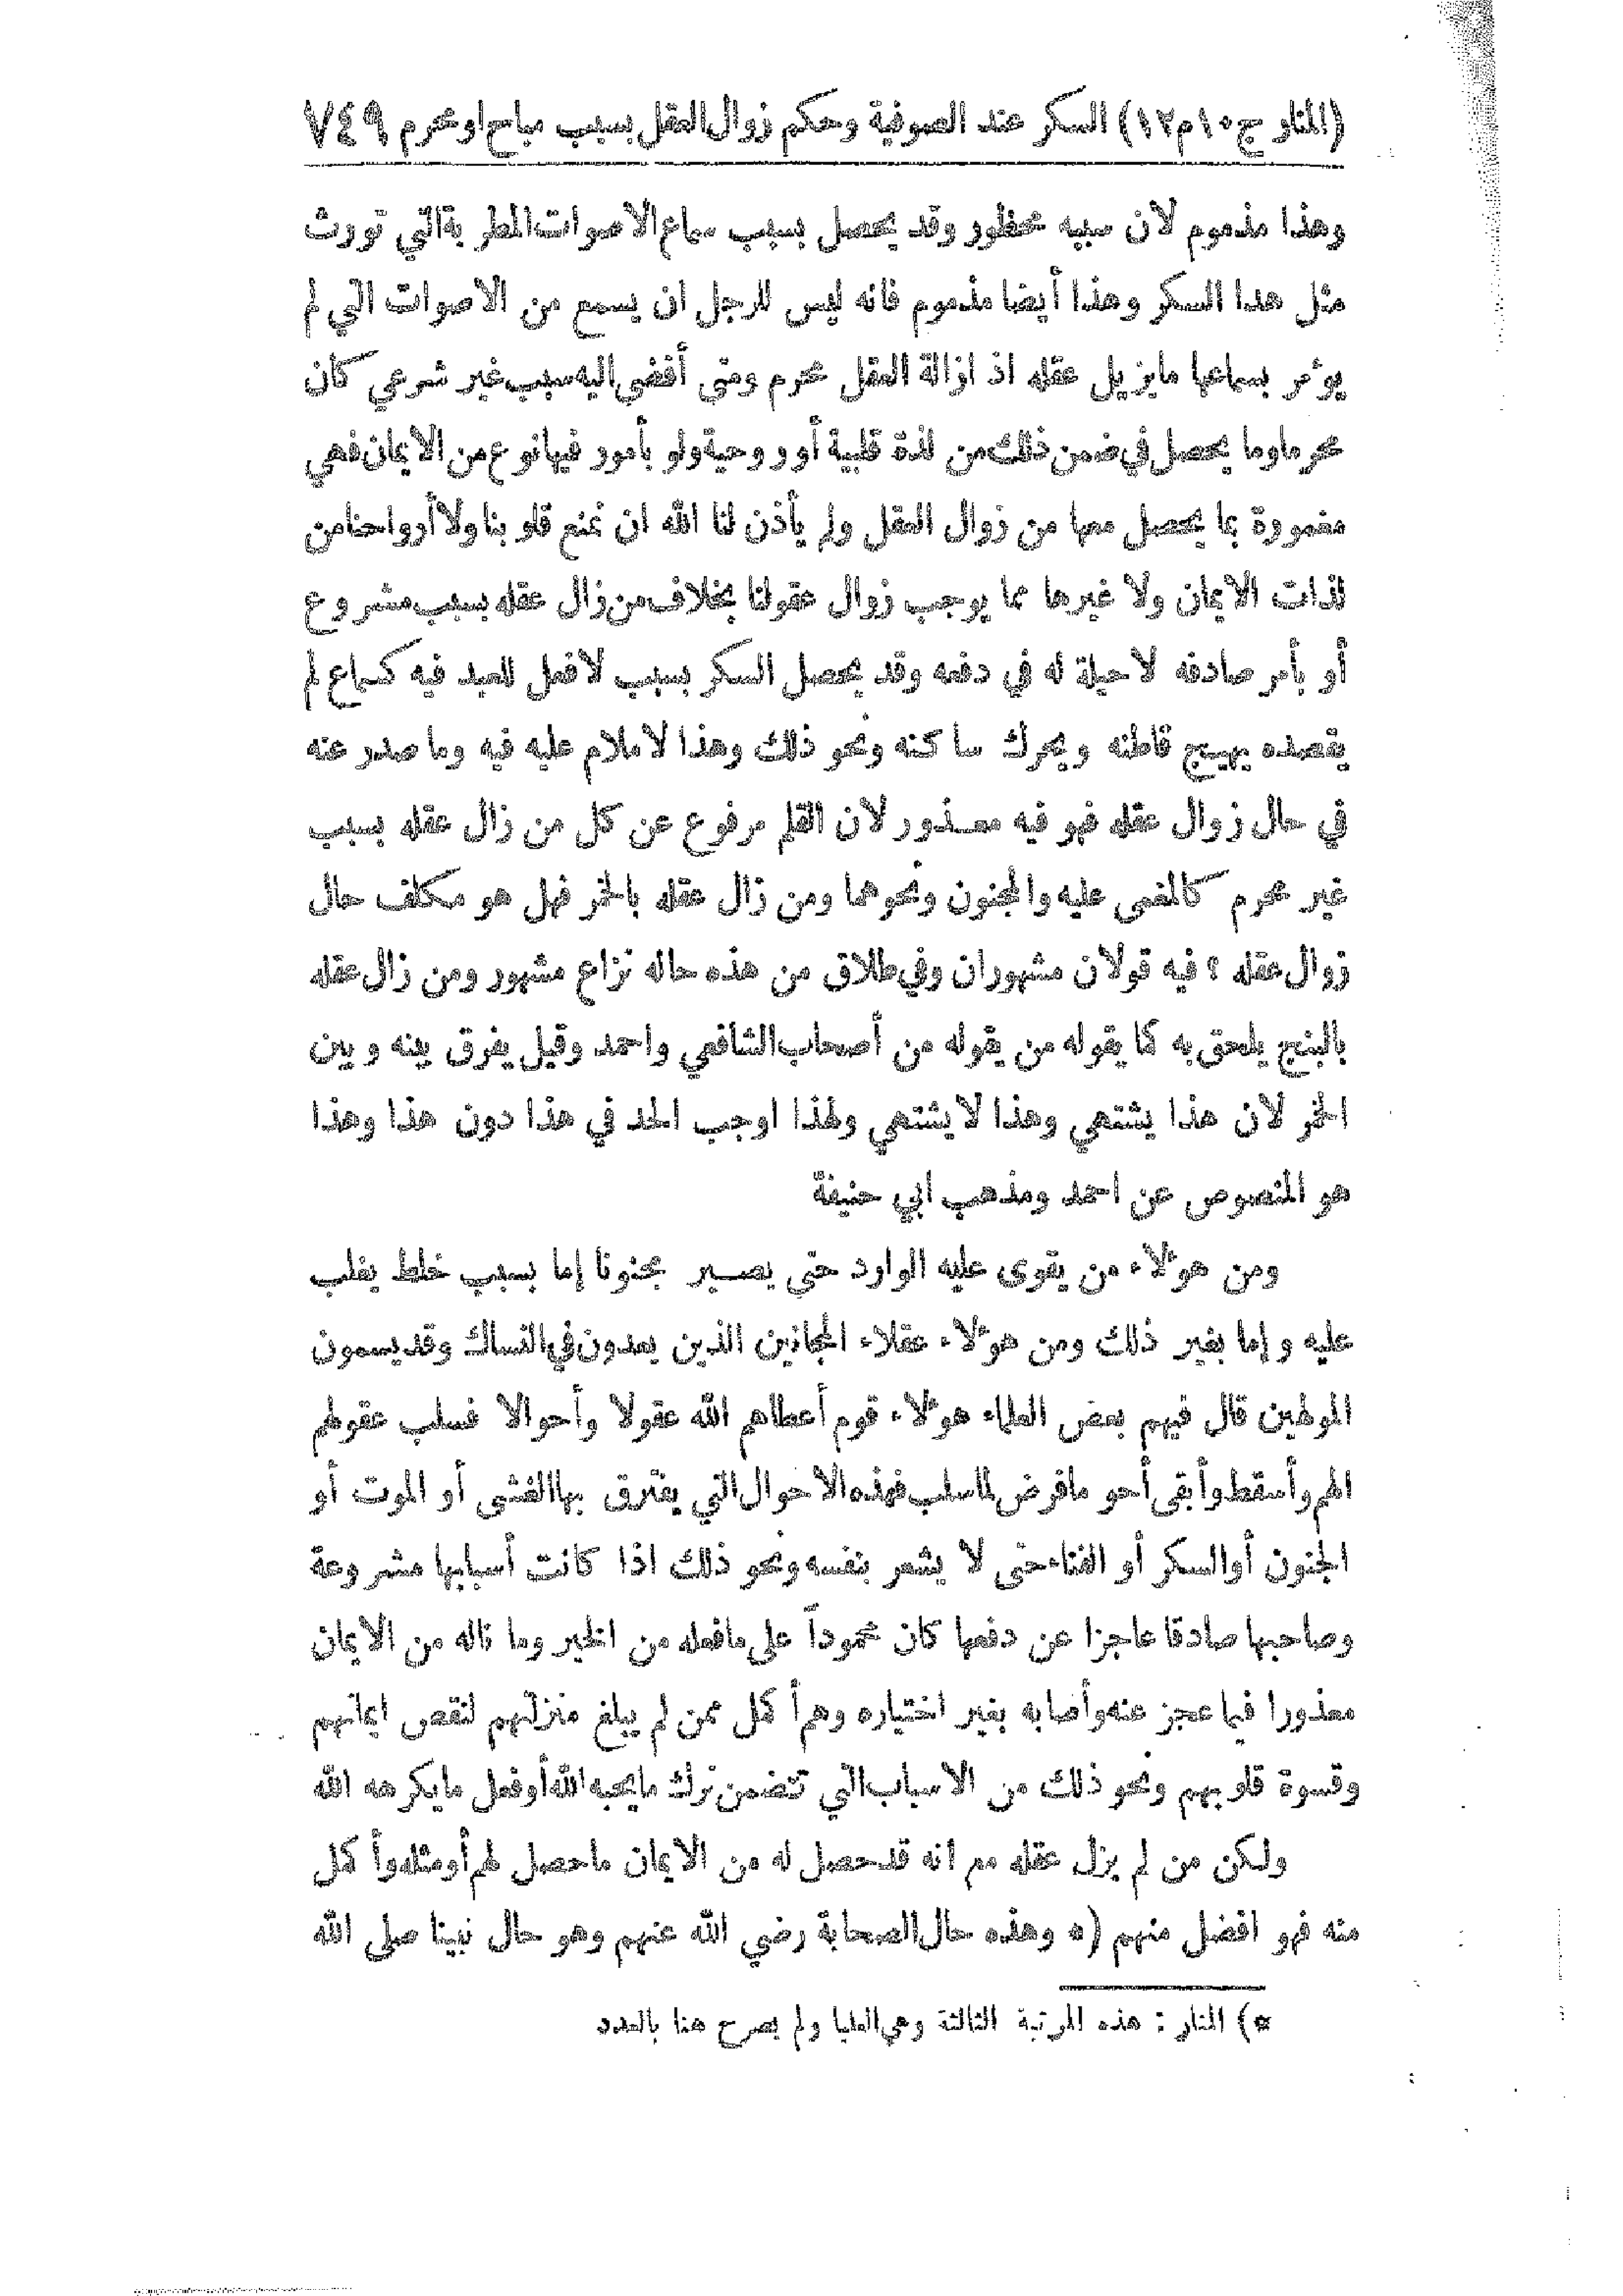 (المنار ج١٠م١٢) السكر عند الصوفية وحكم زوال العقل بسبب مباح او محرم ٧٤٩
وهذا مذموم لان سببه محظور وقد يحصل بسبب سماع الاصوات المطربة التي تورث
مثل هذا السكر وهذا أيضا مذموم فانه ليس للرجل ان يسمع من الاصوات التي لم
يؤمر بسماعها مايزيل عقله اذ ازالة العقل محرم ومتى أفضى اليه سبب غير شرعي كان
محرما وما يحصل في ضمن ذلك من لذة قلبية أو روحية ولو بأمور فيها نوع من الايمان فهي
مغمورة بما يحصل معها من زوال العقل ولم يأذن لنا الله ان نمتع قلوبنا ولا أرواحنا من
لذات الايمان ولا غيرها مما يوجب زوال عقولنا بخلاف من زال عقله بسبب مشروع
أو بأمر صادفه لا حيلة له في دفعه وقد يحصل السكر بسبب لا فعل للعبد فيه كسماع لم
يقصده يهيج قاطنه ويحرك ساكنه ونحو ذلك وهذا لا ملام عليه فيه وما صدر عنه
في حال زوال عقله فهو فيه معذور لان القلم مرفوع عن كل من زال عقله بسبب
غير محرم كالمغمى عليه والمجنون ونحوهما ومن زال عقله بالخمر فهل هو مكلف حال
زوال عقله ؟ فيه قولان مشهوران وفي طلاق من هذه حاله نزاع مشهور ومن زال عقله
بالبنج يلحق به كما يقوله من يقوله من أصحاب الشافعي واحمد وقيل يفرق بينه وبين
الخمر لان هذا يشتهي وهذا لا يشتهي ولهذا اوجب الحد في هذا دون هذا وهذا
هو المنصوص عن احمد ومذهب ابي حنيفة
ومن هؤلاء من يقوى عليه الوارد حتى يصير مجنونا إما بسبب خلط يغلب
عليه وإما بغير ذلك ومن هؤلاء عقلاء المجانين الذين يعدون في النساك وقد يسمون
المولهين قال فيهم بعض العلماء هؤلاء قوم أعطاهم الله عقولا وأحوالا فسلب عقولهم
الهم وأسقط وأبقى أحو مافرض لما سلب فهذه الاحوال التي يقترق بها الغشى أو الموت أو
الجنون أو السكر أو الفناء حتى لا يشعر بنفسه ونحو ذلك اذا كانت أسبابها مشروعة
وصاحبها صادقا عاجزا عن دفعها كان محموداً على مافعله من الخير وما ناله من الايمان
معذورا فيما عجز عنه وأصابه بغير اختياره وهم أكمل ممن لم يبلغ منزلتهم لنقص ايمانهم
وقسوة قلوبهم ونحو ذلك من الاسباب التي تتضمن ترك مايحبه الله أو فعل مايكرهه الله
ولكن من لم يزل عقله مع انه قد حصل له من الايمان ما حصل لهم أو مثله وأكمل
منه فهو افضل منهم (* وهذه حال الصحابة رضي الله عنهم وهو حال نبينا صلى الله
*) المنار : هذه المرتبة الثالثة وهي العليا ولم يصرح هنا بالعدد